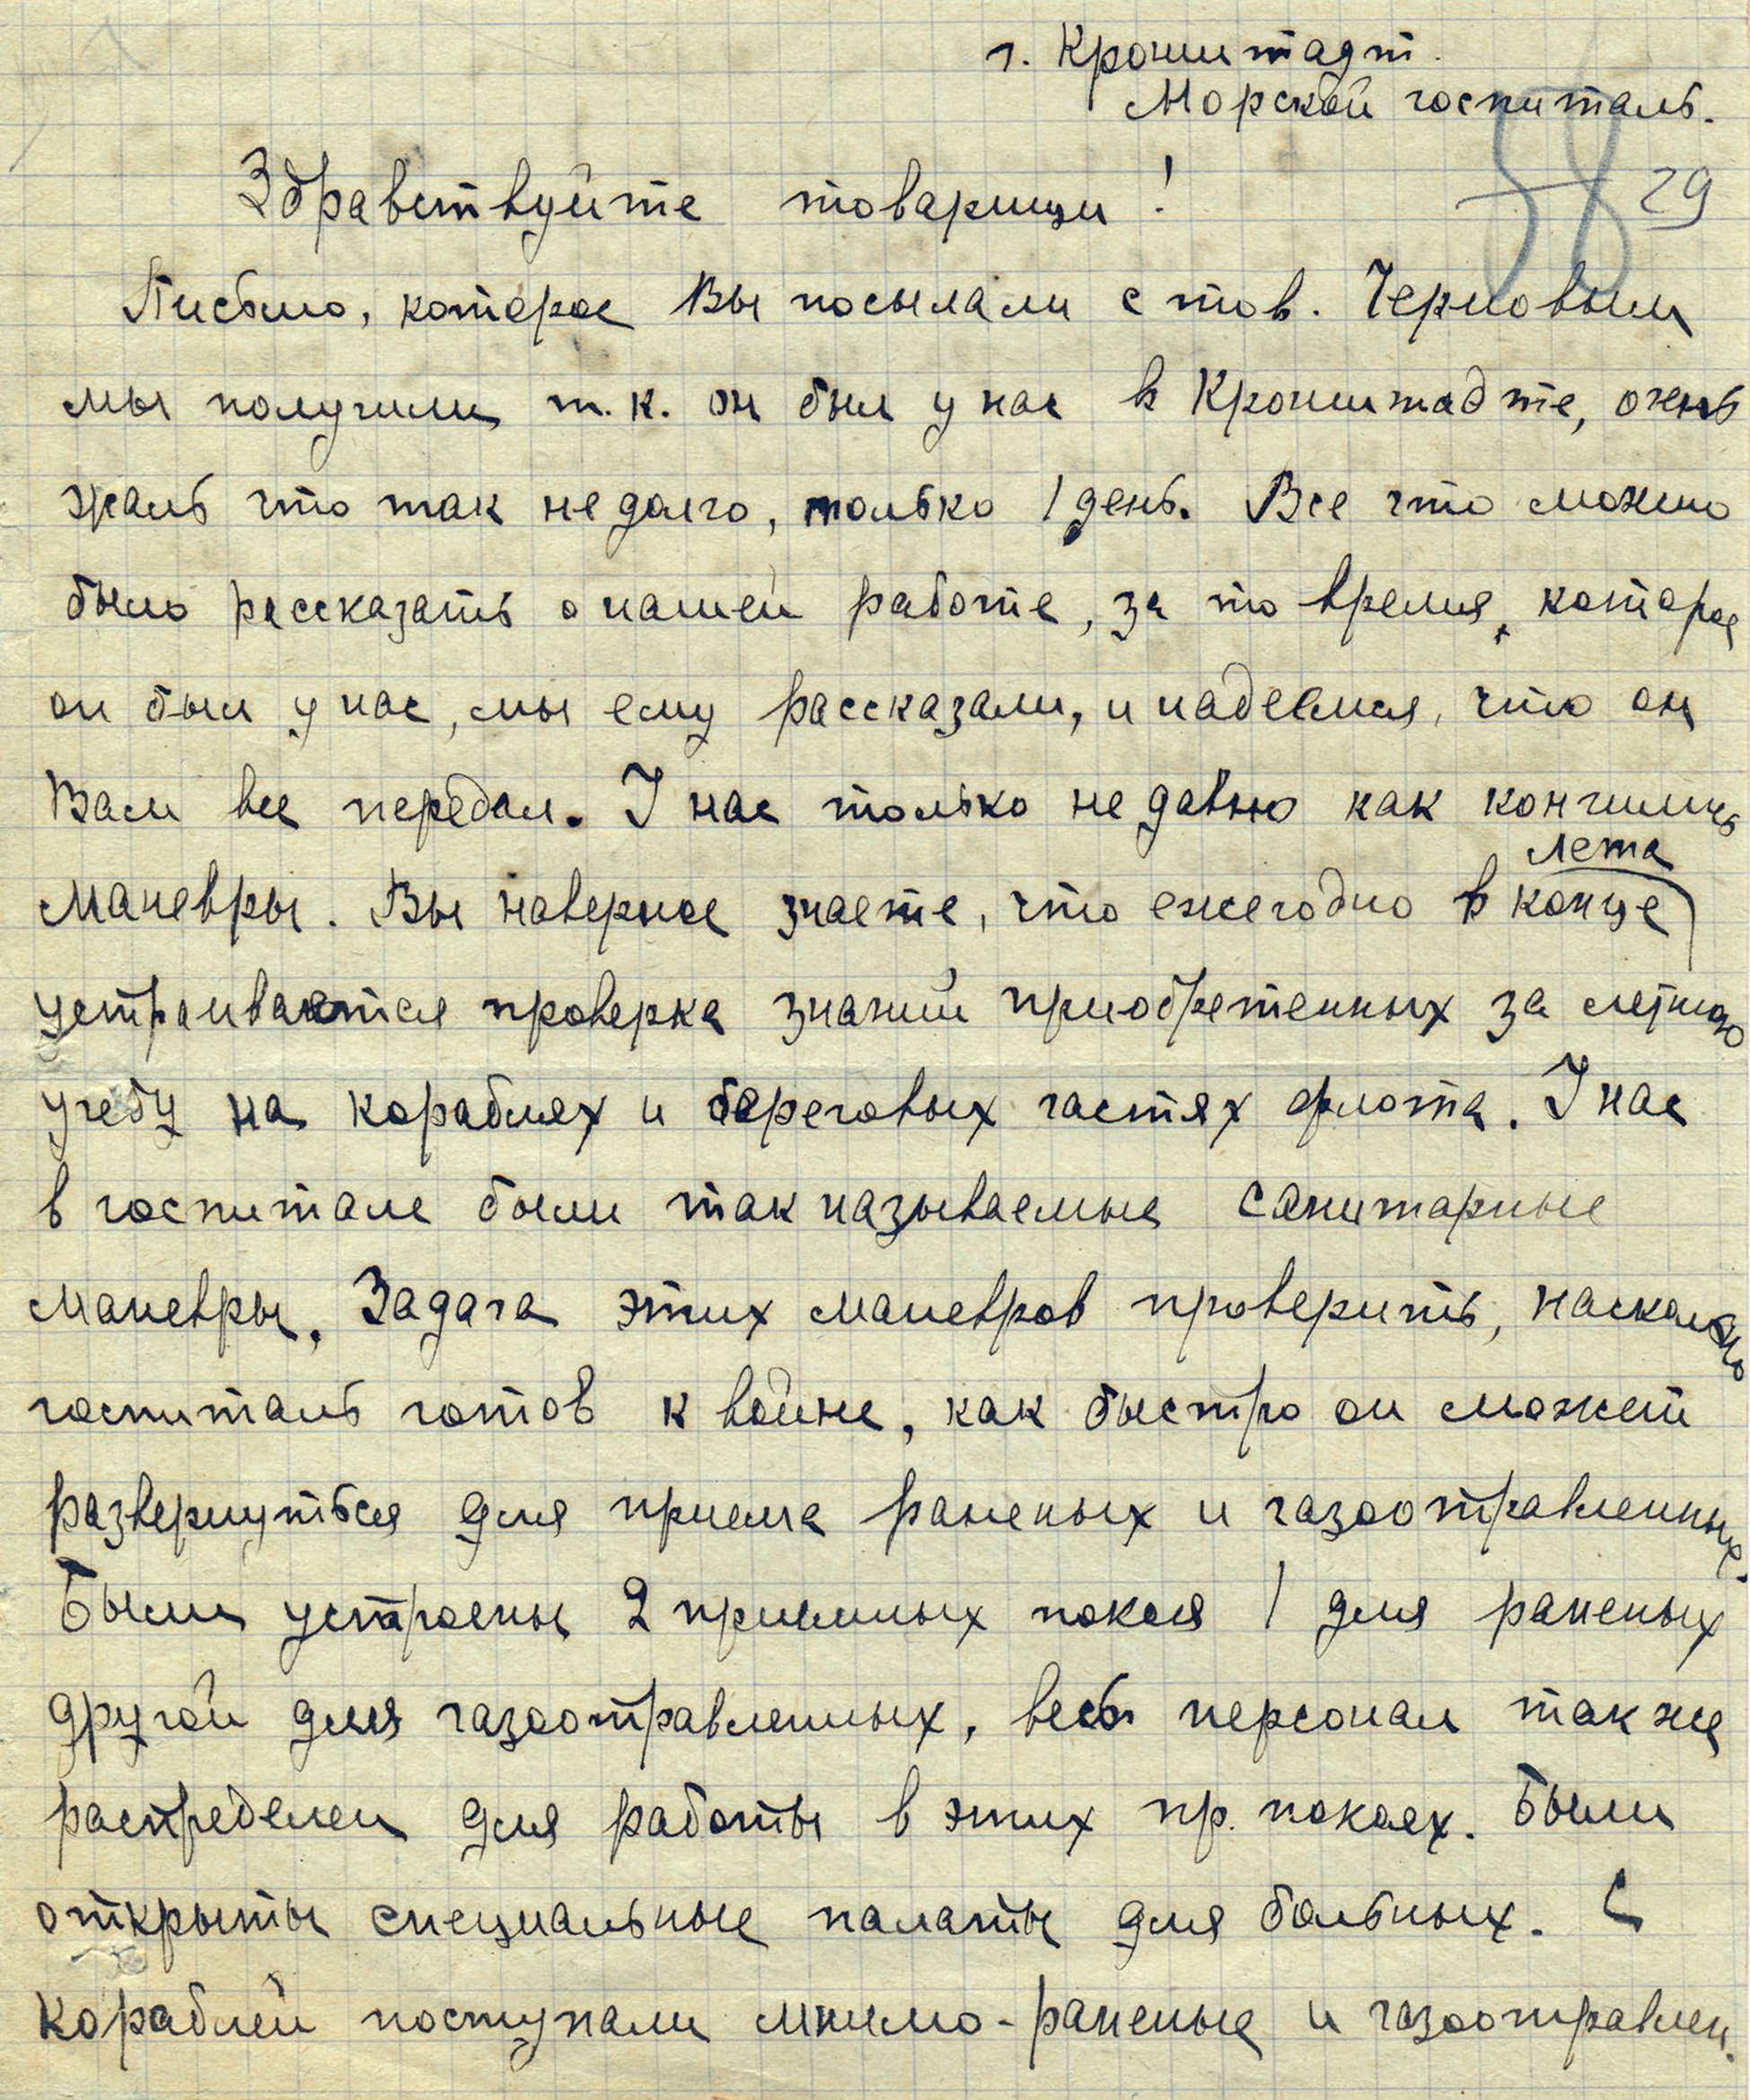 г. Кронштадт.
Морской госпиталь.
29
Здравствуйте товарищи!
Письмо, которое Вы посылали с тов. Черновым
мы получили т.к. он был у нас в Кронштадте, очень
жаль что так не долго, только 1 день. Все что можно
было рассказать о нашей работе, за то время, которое
он был у нас, мы ему рассказали, и надеемся, что он
Вам все передал. У нас только не давно как кончились
лета
маневры. Вы наверное знаете, что ежегодно в конце
устраивается проверка знаний приобретенных за летнюю
учебу на кораблях и береговых частях флота. У нас
в госпитале были так называемые санитарные
маневры. Задача этих маневров проверить, насколько
госпиталь готов к войне, как быстро он может
развернуться для приема раненых и газоотравленных.
Были устроены 2 приемных покоя 1 для раненых
другой для газоотравленных, весь персонал так же
распределен для работы в этих пр. покоях. Были
открыты специальные палаты для больных. С
кораблей поступали мнимо-раненые и газоотравлен.